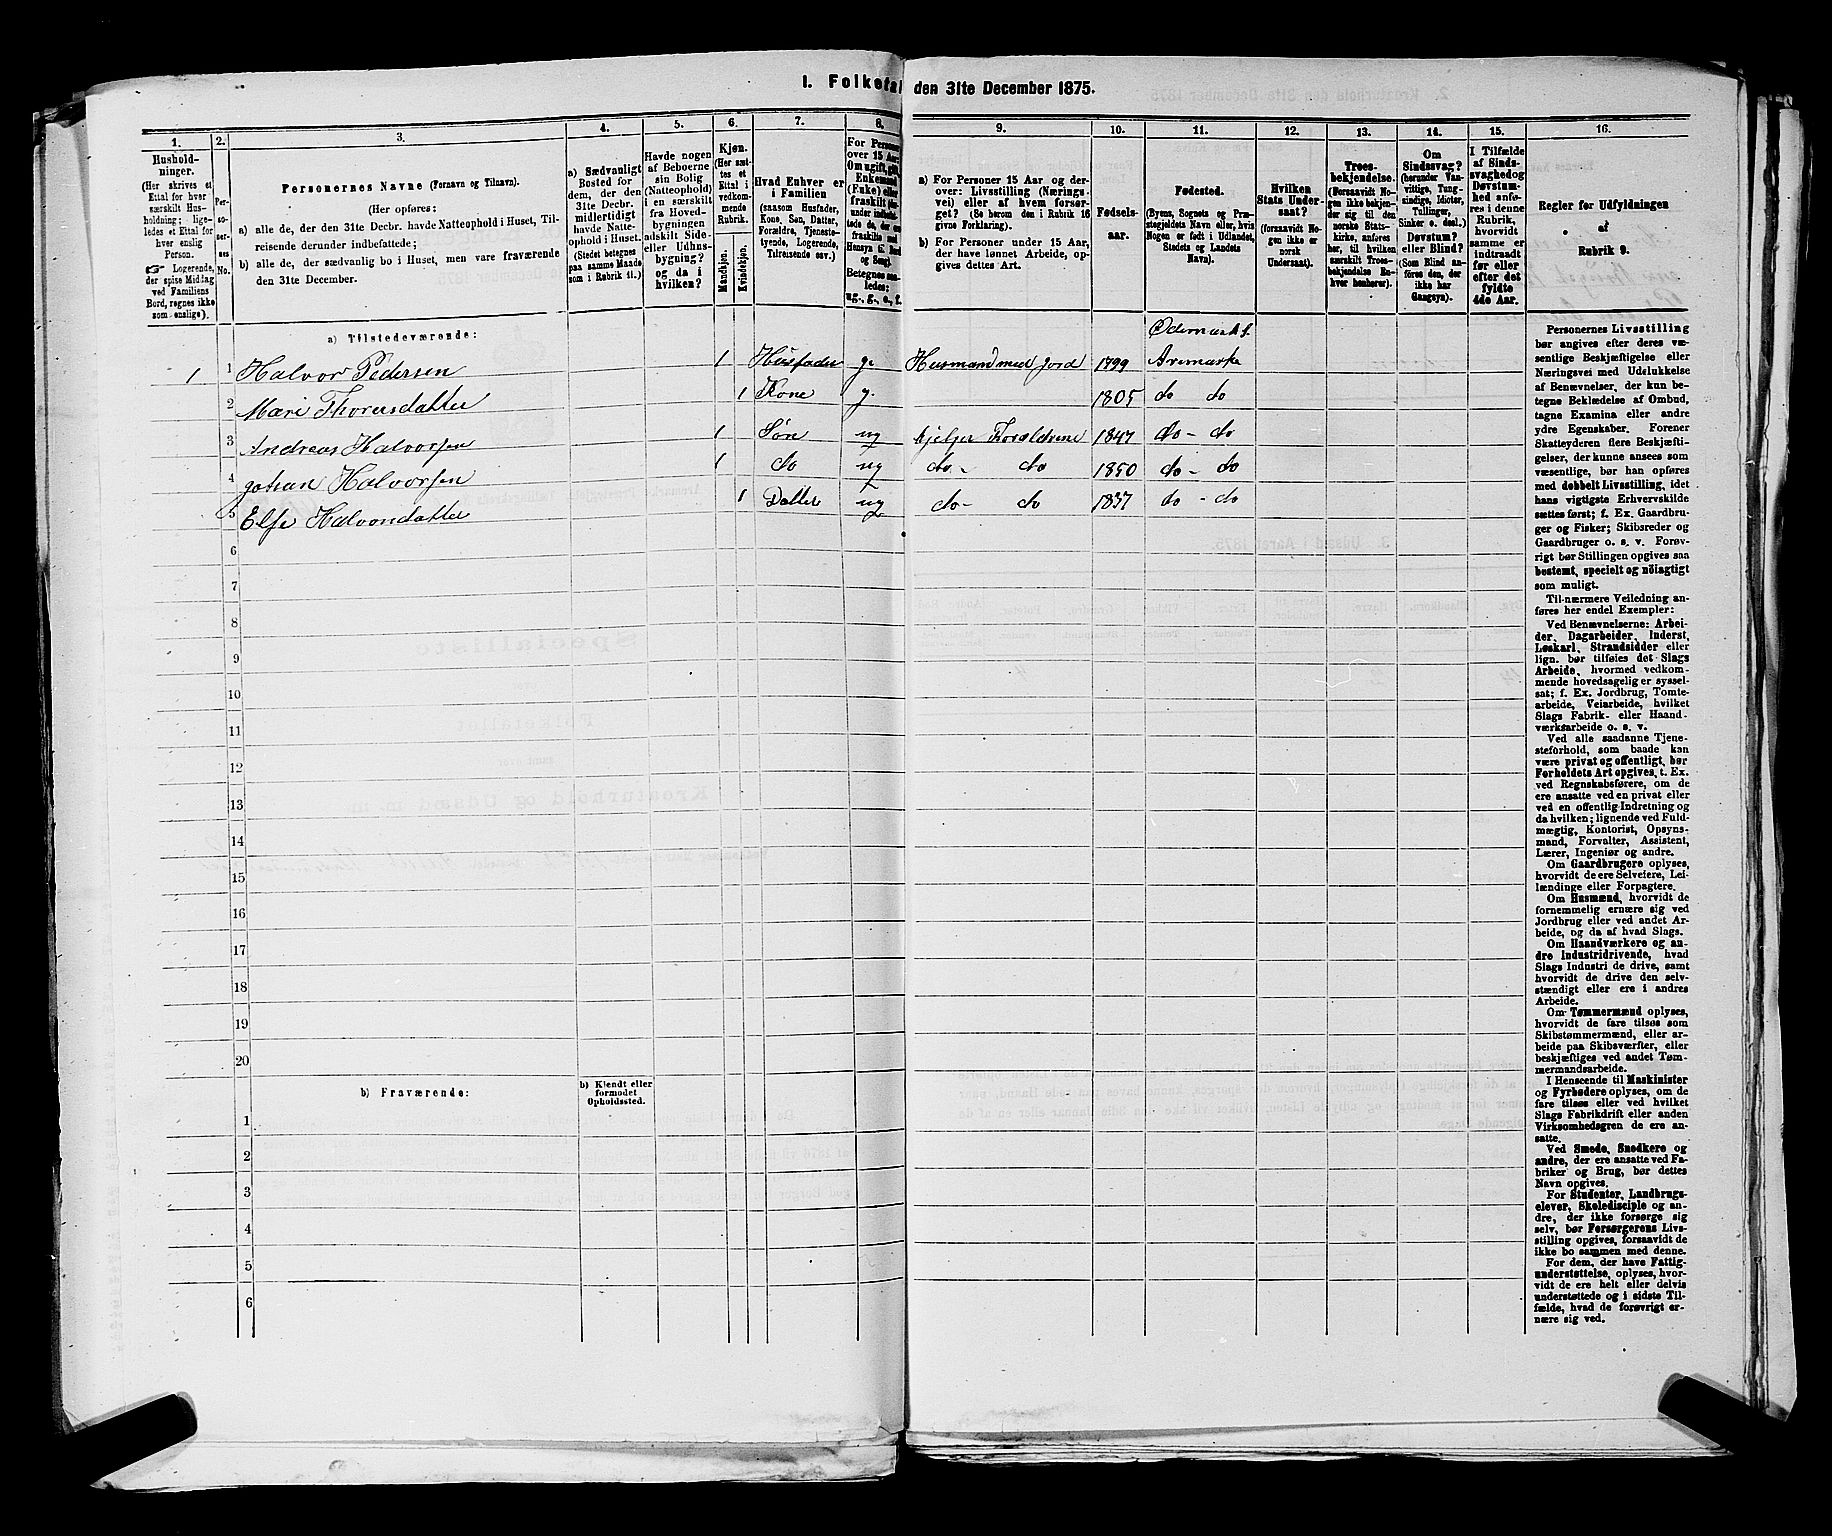 I. Folketal den 31te December 1875.
1.
2.
3.
4.
5.
6.
7.
8.
9.
10.
11.
12.
13.
14.
15.
16.
Hushold-
ninger.
(Her skrives et
Ettal for hver
særskilt Hus-
holdning; lige-
ledes et Ettal for
hver enslig
Person.
☞ Logerende,
der spise Middag
ved Familiens
Bord, regnes ikke
som enslige).
Per-
so-
ner-
nes
No.
Personernes Navne (Fornavn og Tilnavn).
(Her opføres:
a) alle de, der den 31te Decbr. havde Natteophold i Huset, Til-
reisende derunder indbefattede;
b) alle de, der sædvanlig bo i Huset, men vare fraværende
den 31te December.
a) Sædvanligt
Bosted for
dem, der den
31te Decbr.
midlertidigt
havde Natte-
ophold i Huset.
(Stedet betegnes
paa samme Maade
som i Rubrik 11.)
Havde nogen
af Beboerne
sin Bolig
(Natteophold)
i en særskilt
fra Hoved-
bygningen
adskilt Side-
eller Udhus-
bygning?
og da i
hvilken?
Kjøn.
(Her sæt-
tes et
Ettal i
vedkom-
mende
Rubrik.
Mandkjøn.
Kvindekjøn.
Hvad Enhver er
i Familien
(saasom Husfader,
Kone, Søn, Datter,
Forældre, Tjeneste-
tyende, Logerende,
Tilreisende osv.)
For Personer
over 15 Aar:
Om ugift, gift,
Enkemand
(Enke) eller
fraskilt
Betegnes saa-
ledes:
ug., g., e., f.
a) For Personer 15 Aar og der-
over: Livsstilling (Nærings-
vei) eller af hvem forsør-
get? (Se herom den i Rubrik 16
givne Forklaring).
b) For Personer under 15 Aar,
der have lønnet Arbeide, op-
gives dettes Art.
Fødsels-
aar.
Fødested.
(Byens, Sognets og Præ-
stegjeldets Navn eller, hvis
Nogen er født i Udlandet,
Stedets og Landets
Navn).
Hvilken
Stats Under-
saat?
(forsaavidt No-
gen ikke er
norsk
Undersaat).
Troes-
bekjendelse.
(Forsaavidt No-
gen ikke bekjen-
der sig til den
norske Stats-
kirke, anføres
her, til hvilken
særskilt Troes-
bekjendelse En-
hver henhører).
Om
Sindssvag?
(herunder Van-
vittige, Tung-
sindige, Idioter,
Tullinger,
Sinker o. desl.)
Døvstum?
eller Blind?
(Som Blind an-
føres den, der
ikke har
Gangsyn).
I Tilfælde
af Sinds-
svaghed og
Døvstum-
hed anfø-
res i denne
Rubrik,
hvorvidt
samme er
indtraadt
før eller
efter det
fyldte
4de Aar.
Regler for Udfyldningen
af
Rubrik 9.
a) Tilstedeværende:
Ødemark s.
1 1 Halvor Pedersen 1 Husfader g. Husmand med Jord 1799 Aremarke
2 Mari Thoresdatter 1 Kone g. 1805 do do
3 Andreas Halvorsen 1 Søn ug hjelper Forældrene 1847 do - do
4 Johan Halvorsen 1 do ug do - do 1850 do - do
5 Else Halvorsdatter 1 Datter ug do - do 1837 do - do
6
7
8
9
10
11
12
13
14
15
16
17
18
19
20
b) Fraværende:
b) Kjendt eller
formodet
Opholdssted.
1
2
3
4
5
6
Personernes Livsstilling
bør angives efter deres væ-
sentlige Beskjæftigelse eller
Næringsvei med Udelukkelse
af Benævnelser, der kun be-
tegne Beklædelse af Ombud,
tagne Examina eller andre
ydre Egenskaber. Forener
Skatteyderen flere Beskjæfti-
gelser, der kunne ansees som
væsentlige, bør han opføres
med dobbelt Livsstilling, idet
hans vigtigste Erhvervskilde
sættes først; f. Ex. Gaardbru-
ger og Fisker; Skibsreder og
Gaardbruger o. s. v. Forøv-
rigt bør Stillingen opgives saa
bestemt, specielt og nøiagtigt
som muligt.
Til nærmere Veiledning an-
føres her endel Exempler:
Ved Benævnelserne: Arbei-
der, Dagarbeider, Inderst,
Løskarl, Strandsidder eller
lign. bør tilføies det Slags
Arbeide, hvormed vedkom-
mende hovedsagelig er syssel-
sat; f. Ex. Jordbrug, Tomte-
arbeide, Veiarbeide, hvilket
Slags Fabrik- eller Haand-
værksarbeide o. s. v.
Ved alle saadanne Tjene-
steforhold, som baade kan
være privat og offentligt, bør
Forholdets Art opgives, t. Ex.
ved Regnskabsførere, om de
ere ansatte ved en privat eller
ved en offentlig Indretning og
da hvilken; lignende ved Fuld-
mægtig, Kontorist, Opsyns-
mand, Forvalter, Assistent,
Lærer, Ingeniør og andre.
Om Gaardbrugere oplyses,
hvorvidt de ere Selveiere, Lei-
lændinge eller Forpagtere.
Om Husmænd, hvorvidt de
fornemmelig ernære sig ved
Jordbrug eller ved andet Ar-
beide, og da af hvad Slags.
Om Haandværkere og an-
dre Industridrivende, hvad
Slags Industri de drive, samt
hvorvidt de drive den selv-
stændigt eller ere i andres
Arbeide.
Om Tømmermænd oplyses,
hvorvidt de fare tilsøs som
Skibstømmermænd, eller ar-
beide paa Skibsværfter, eller
beskjæftiges ved andet Tøm-
mermandsarbeide.
I Henseende til Maskinister
og Fyrbødere oplyses, om de
fare tilsøs eller ved hvilket
Slags Fabrikdrift eller anden
Virksomhedsgren de ere an-
satte.
Ved Smede, Snedkere og
andre, der ere ansatte ved Fa-
briker og Brug, bør dettes
Navn opgives.
For Studenter, Landbrugs-
elever, Skoledisciple og an-
dre, der ikke forsørge sig
selv, bør Forsørgerens Livs-
stilling opgives, forsaavidt de
ikke bo sammen med denne.
For dem, der have Fattig-
understøttelse, oplyses, hvor-
vidt de ere helt eller delvis
understøttede og i sidste Til-
fælde, hvad de forøvrigt er-
nære sig ved.